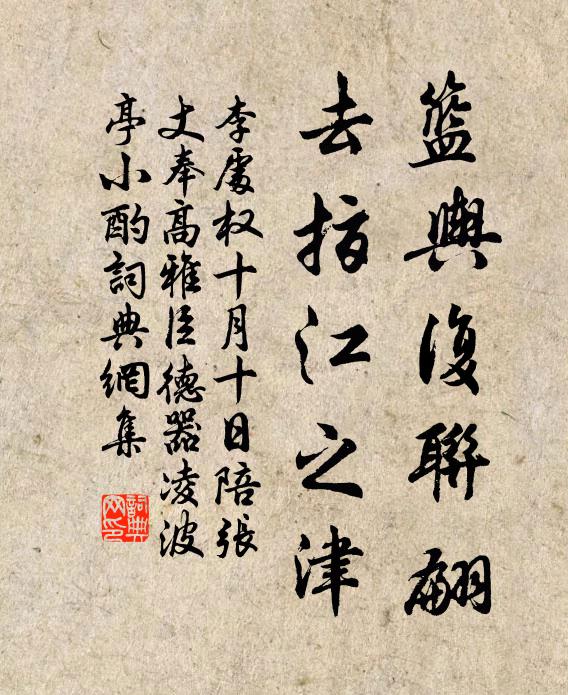 籃輿復聯翩
去指江之津
李處权十月十日陪張
丈奉高雅臣德器凌波
亭小酌詞典網集
詞典
网印